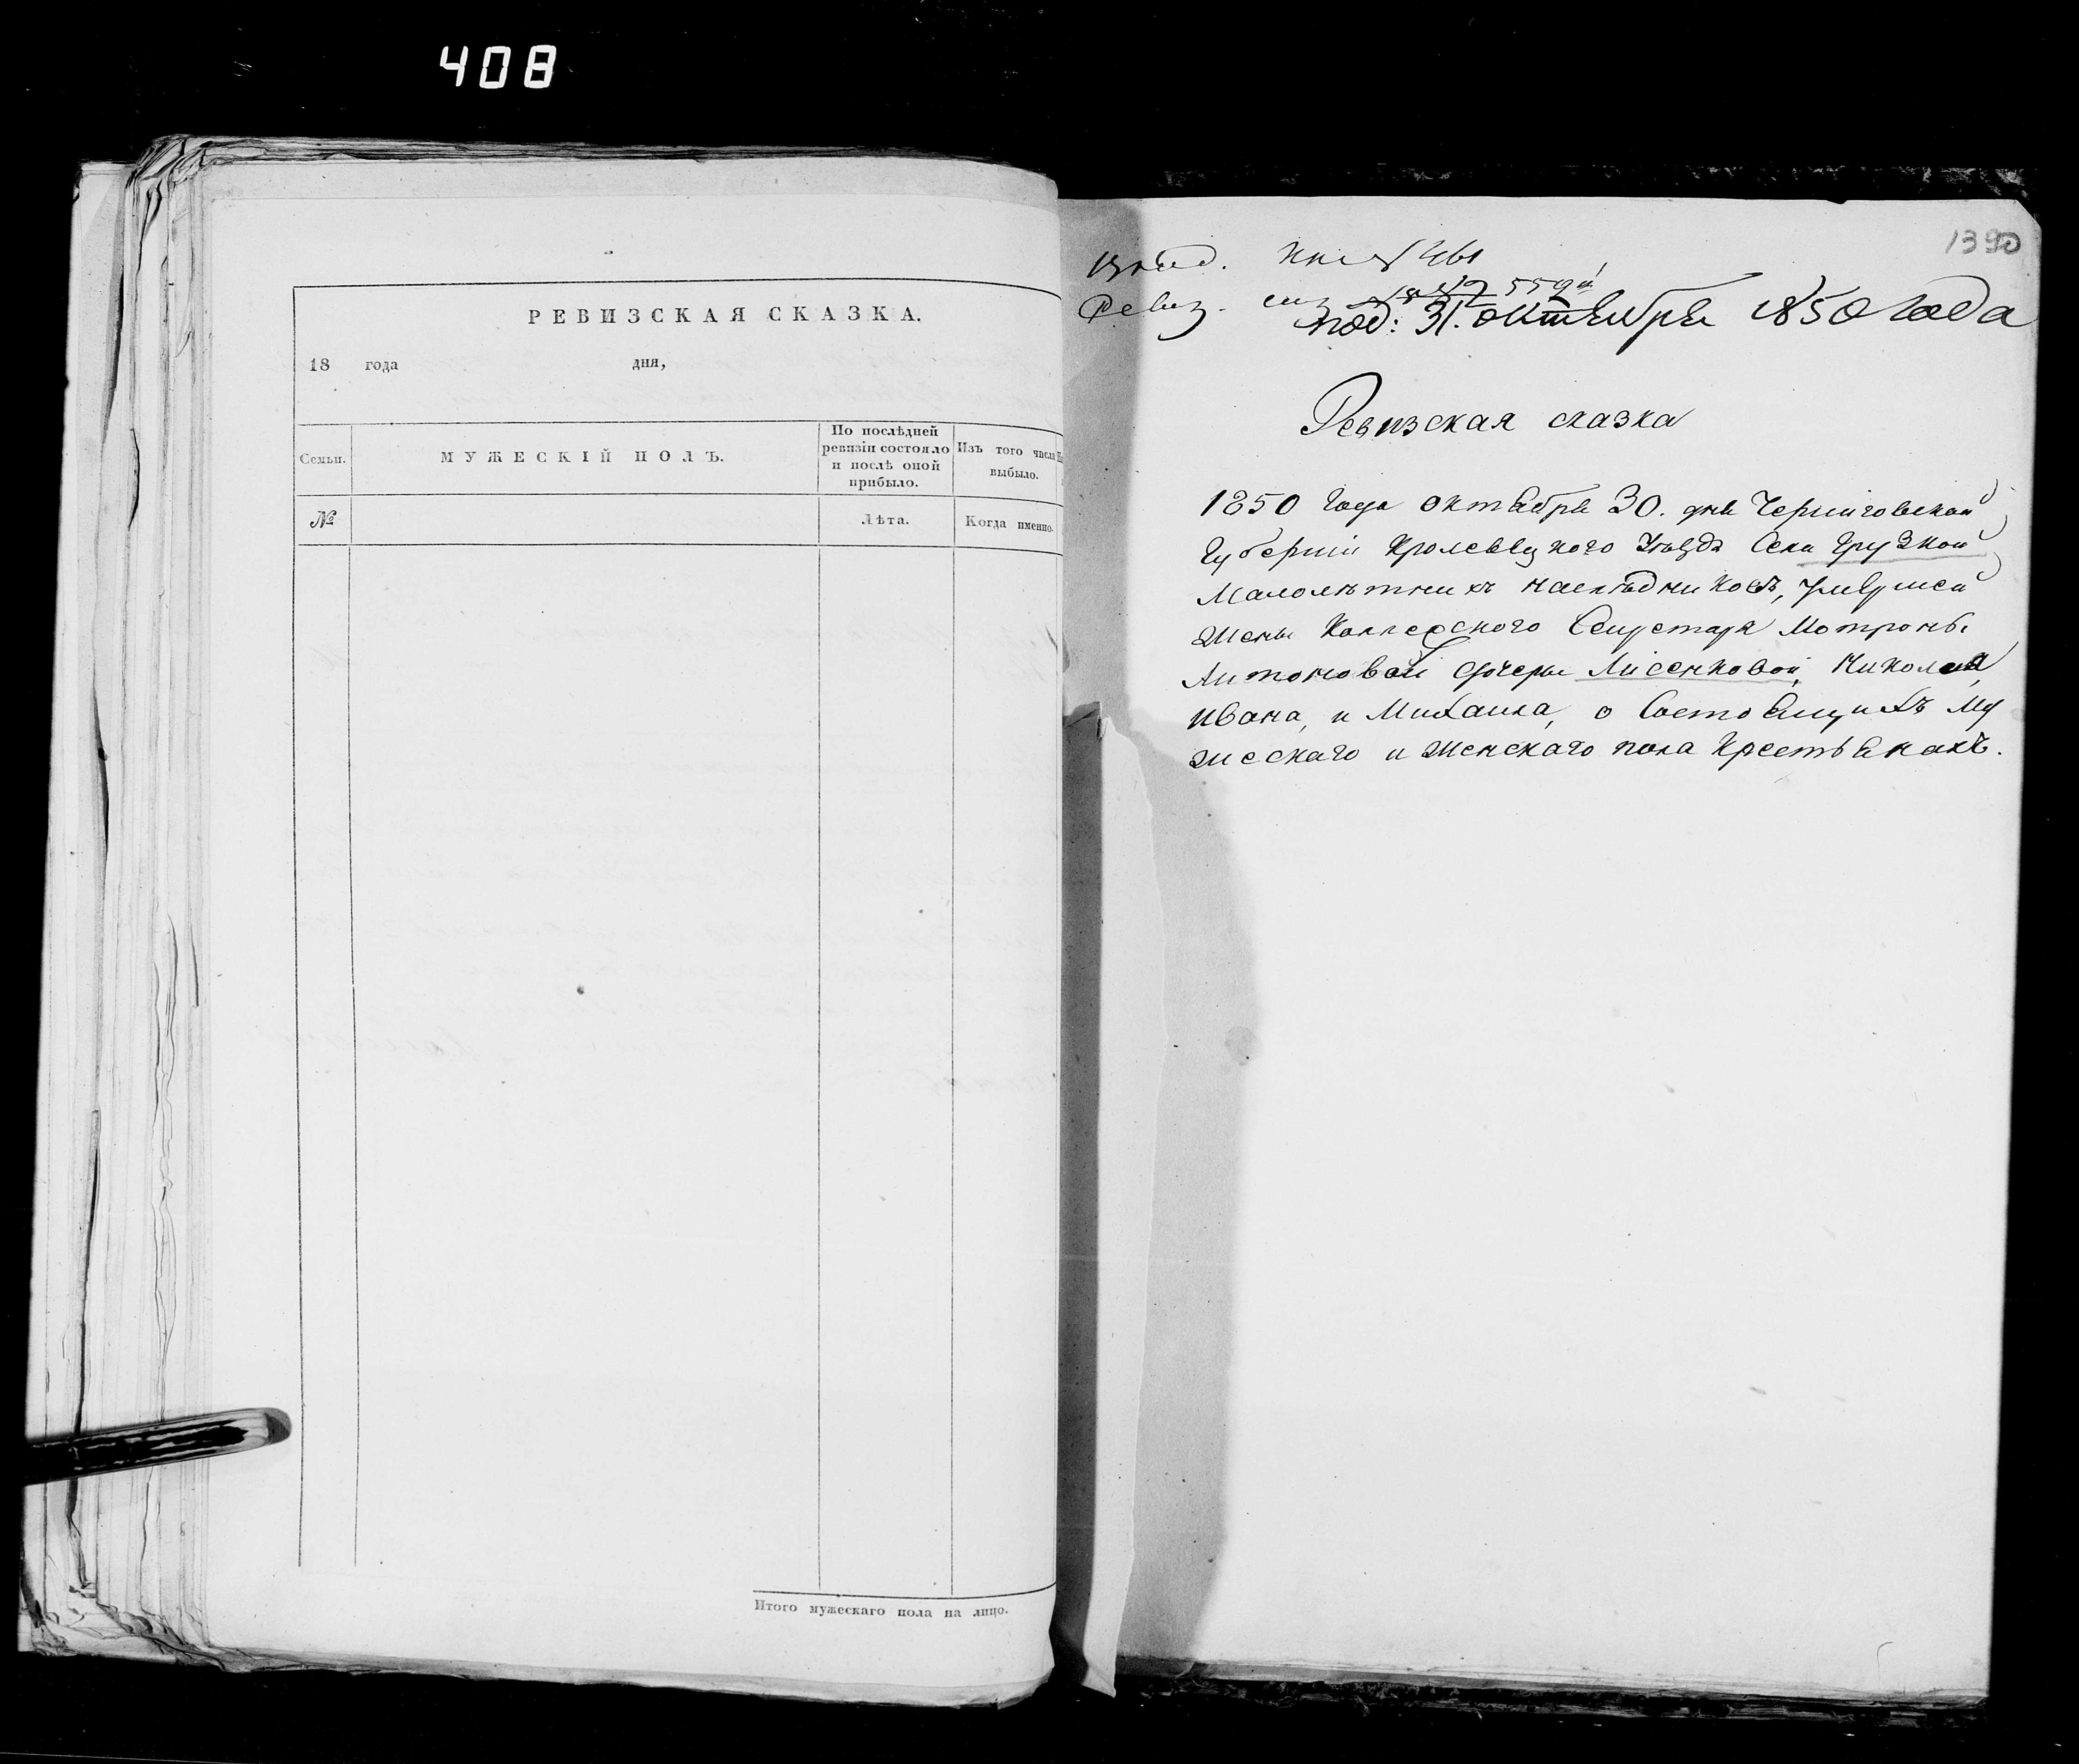 408
РЕВИЗСКАЯ СКАЗКА.
18 года дня,
Семьи.
МУЖЕСКІЙ ПОЛЪ.
По послѣдней
ревизіи состояло
и послѣ оной
прибыло.
Изъ того числа
выбыло.
№
Лѣта.
Когда именно.
Итого мужескаго пола на лицо.
1390
Ревиз.
под: 31. октября 1850 года
Ревизская сказка
1850 года октября 30. дня Черниговской
Губерніи Кролевецкого Уѣзда Села Грузкой
Малолѣтнихъ наслѣдниковъ, умершей
жены Коллежского Секретаря Мотроны
Антоновой дочери Лисенковой, Николая,
Ивана, и Михаила, о состоящихъ му
жескаго и женскаго пола крестьянахъ.